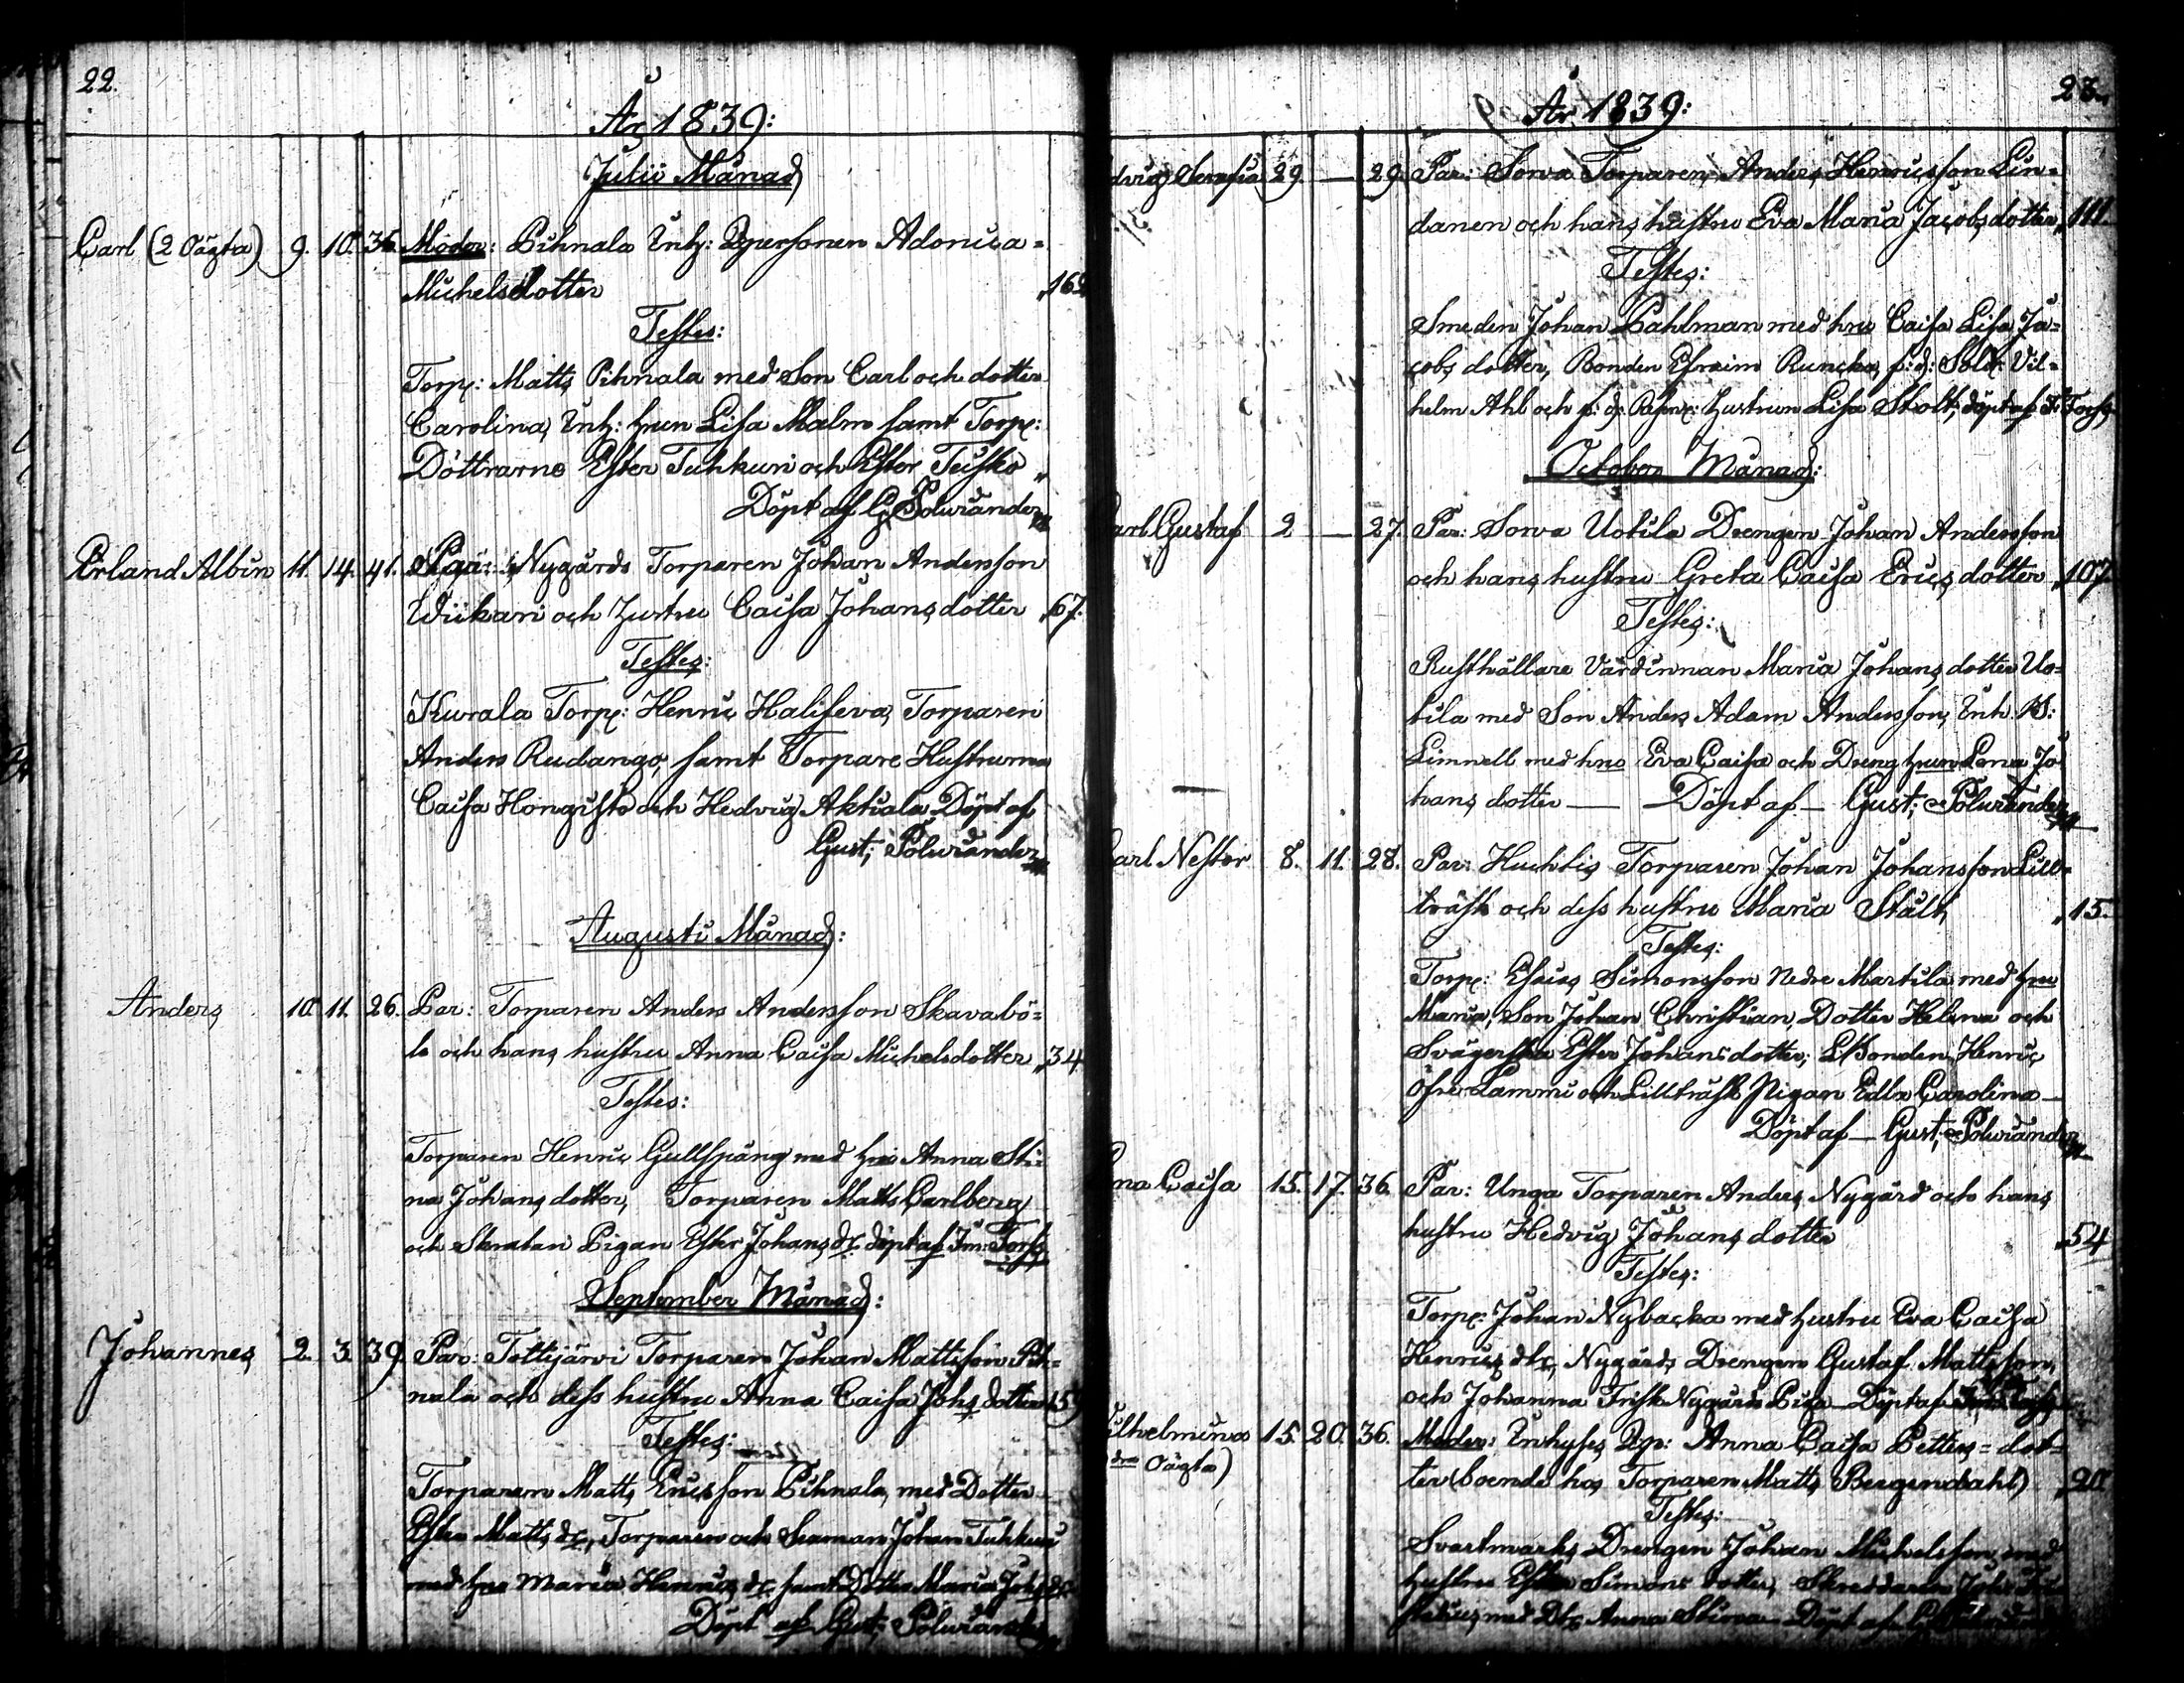 22.
År 1839:
Julii Månad
Carl (2 Oägta) 9. 10. 36. Moder: Pihnala Inh: Qpersonen Adonica=
Michelsdotter 162
Testes:
Torp: Matts Pihnala med Son Carl och dotter
Carolina, Inh: hrun Lisa Malm samt Torp:
Döttrarne Ester Tuhkuri och Ester Tuisko
Döpt af G. Polviander
Erland Albin 11. 14. 41. Nygårds Torparen Johan Andersson
Wiikari och hustru Caisa Johansdotter 67.
Testes:
Kurala Torp: Henric Halifeva, Torparen
Anders Rudango, samt Torpare Hustrurna
Caisa Hongisto och Hedvig Aktiala. Döpt af
Gust: Polviander
Augusti Månad:
Anders 10. 11. 26. Par: Torparen Anders Andersson Skavabö=
le och hans hustru Anna Caisa Michelsdotter 34
Testes:
Torparen Henric Gullspång med hru Anna Sti=
na Johansdotter, Torparen Matts Carlberg
och Skratan Pigan Ester Johansdr. döpt af Fr: Forss
September Månad:
Johannes 2. 3. 39. Par: Tottijärvi Torparen Johan Mattsson Pih=
nala och dess hustru Anna Caisa Johsdotter 159
Testes:
Torparen Matts Ericsson Pihnala, med Dotter
Ester Mattsdr, Torparen och Seaman Johan Tuhkuri
med hru Maria Henricsdr, samt Dotter Maria Johsdr.
Döpt af Gust: Polviander
23.
År 1839:
dvig Serafia 29. — 29. Par: Sorva Torparen Anders Henricsson Lin=
danen och hans hustru Eva Maria Jacobsdotter 111
Testes:
Smeden Johan Pahlman med hru Caisa Lisa Ja=
cobsdotter, Bonden Efraim Runcka, f: d: Sold: Vil=
helm Ahl och f: d: hustrun Lisa Stolt, döpt af Fr Forss
October Månad:
Carl Gustaf 2 — 27. Par: Sorva Uotila Drengen Johan Andersson
och hans hustru Greta Caisa Ericsdotter 107.
Testes:
Rusthållare Värdinnan Maria Johansdotter Uo=
tila med Son Anders Adam Andersson, Inh.
Limnell med hru Eva Caisa och Dreng hrun Lena Jo
hansdotter — Döpt af — Gust: Polviander
Carl Nestor 8. 11. 28. Par: Huchtis Torparen Johan Johansson Lill=
träsk och dess hustru Maria Stålt 15.
Testes:
Torp: Esaias Simonsson Nedre Martila med hru
Maria, Son Johan Christian, Dotter Helena och
Svägerska Ester Johansdotter, Bonden Henric
Öfre Lammi och Lillträsk Pigan Edla Carolina —
Döpt af — Gust: Polviander
na Caisa 15. 17. 36. Par: Unga Torparen Anders Nygård och hans
hustru Hedvig Johansdotter 54
Testes:
Torp: Johan Nybacka med hustru Eva Caisa
Henricsdtr, Nygårds Drengen Gustaf Mattsson,
och Johanna Frisk Nygårds Piga — Döpt af
ilhelmina 15. 20. 36. Moder: Inhyses Qp: Anna Caisa Petters=dot=
Oägta) ter (boende hos Torparen Matts Bergendahl) 20
Testes:
Svartmarks Drengen Johan Michelsson med
hustru Ester Simonsdotter, Skreddaren
med Dtr Anna Stina Döpt af